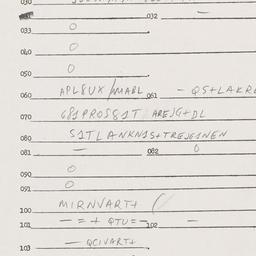 032 —
033 0
040 0
050 0
060 APL8UX/MABL 061 - QS+LAKR
070 G81PROSS1T AREJG+DL
080 S1TLANKNIS+TREJGINEN
081 — 082 0
090 0
091 0
100 MIRNVART+ (
101 — = + QTU = - 102 —
103 — QCIVART+